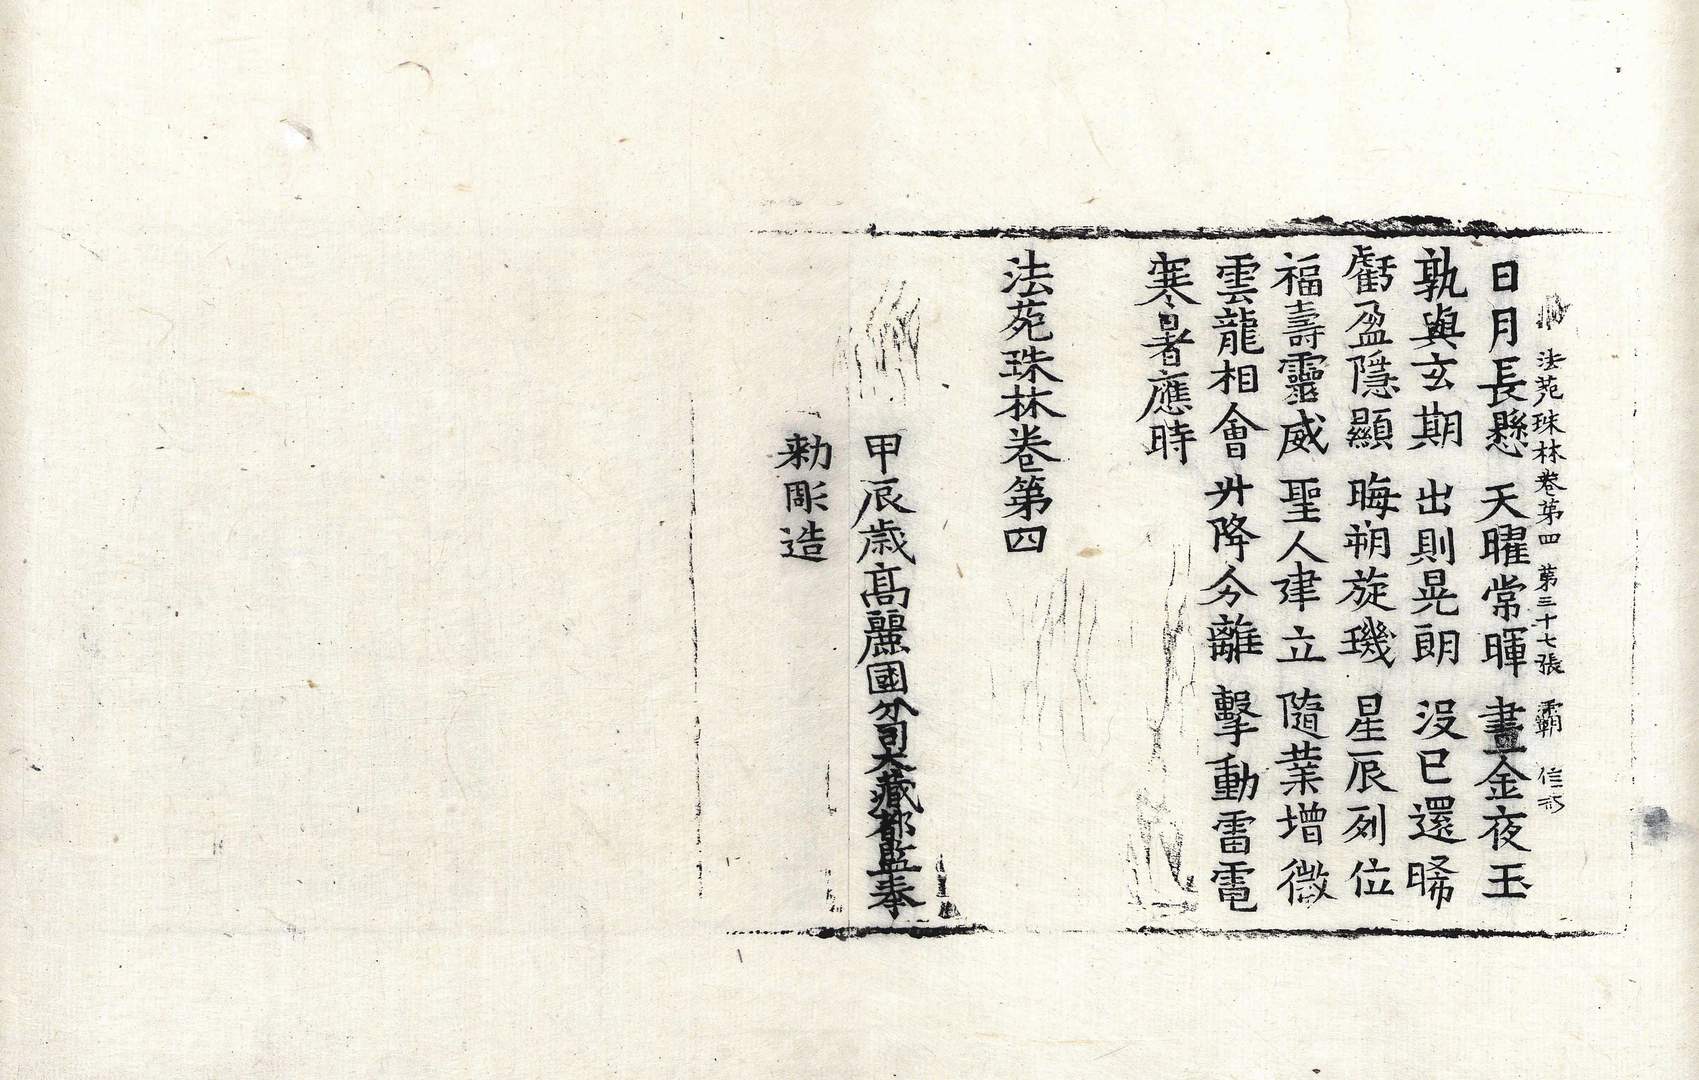 法苑珠林卷第四 第三十七張 覇
日月長懸 天曜常暉 晝金夜玉
孰與玄期 出則晃朗 沒已還晞
虧盈隱顯 晦朔旋璣 星辰列位
福壽靈威 聖人建立 隨業增微
雲龍相會 升降分離 擊動雷電
寒暑應時
法苑珠林卷第四
甲辰歲高麗國分司大藏都監奉
勑彫造